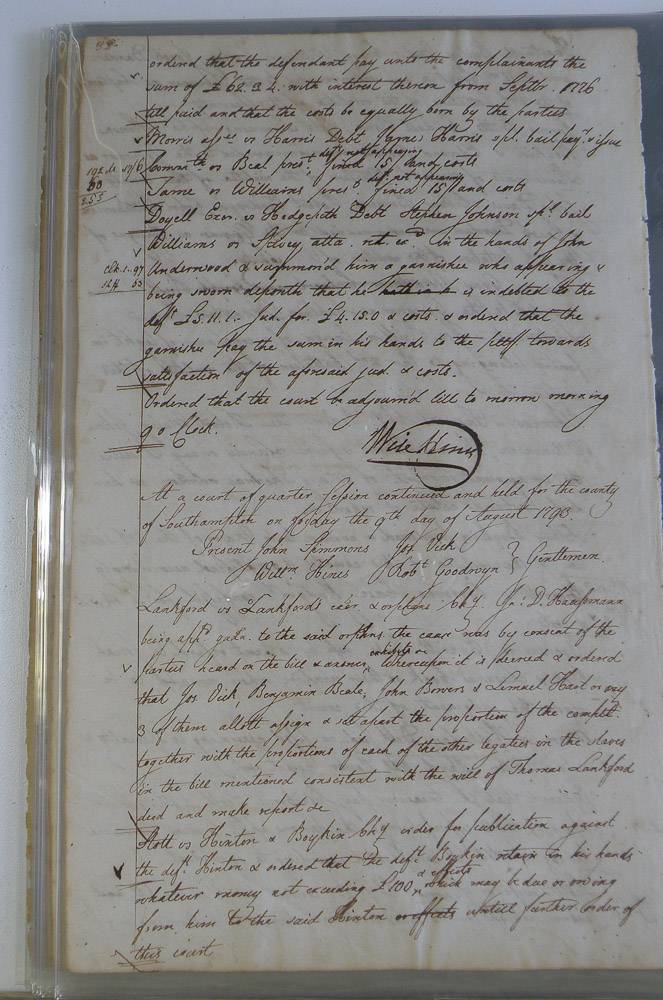 ordered that the defendant pay unto the complainants the
sum of £62.3.4. with interest thereon from Septbr. 1776
till paid and that the costs be equally born by the parties
Morris assee vs Harris Debt James Harris spl. bail pay. & issue
defts not appearing
Commth vs Beal prest. fined 15/ and costs
deft. not appearing
Same vs Williams prest fined 15/ and costs
Doyell Exor. vs Hedgepeth Debt Stephen Johnson spl. bail
Williams vs Spivey atta. in the hands of John
Underwood & summon'd him a garnishee who appearing &
being sworn deposeth that he hath in h is indebted to the
deft £5.11.1. Jud. for £4.15.0 & costs & ordered that the
garnishee pay the sum in his hands to the pltff towards
satisfaction of the aforesaid jud. & costs.
Ordered that the court be adjourn'd till to morrow morning
9 o Clock.
Wm Hines
At a court of quarter Session continued and held for the county
of Southampton on friday the 9th day of August 1793.
Present John Simmons Jos. Vick
Willm. Hines Robt Goodwyn } Gentlemen.
Lankford vs Lankford's exor. & orphans Chy. D. Haussmann
being appd gadn. to the said orphans the cause was by consent of the
exhibits
parties heard on the bill & answer Whereupon it is decreed & ordered
that Jos. Vick, Benjamin Beale, John Bowers & Lemuel Hart or any
3 of them allott assign & set apart the proportion of the complt.
together with the proportions of each of the other legatees in the slaves
in the bill mentioned consistent with the will of Thomas Lankford
decd and make report &c
Hott vs Hinton & Boykin Chy order for publication against
the deft. Hinton & ordered that the deft Boykin retain in his hands
& effects
whatever money not exceeding £100 which may be due or owing
from him to the said Hinton or effects untill further order of
this court